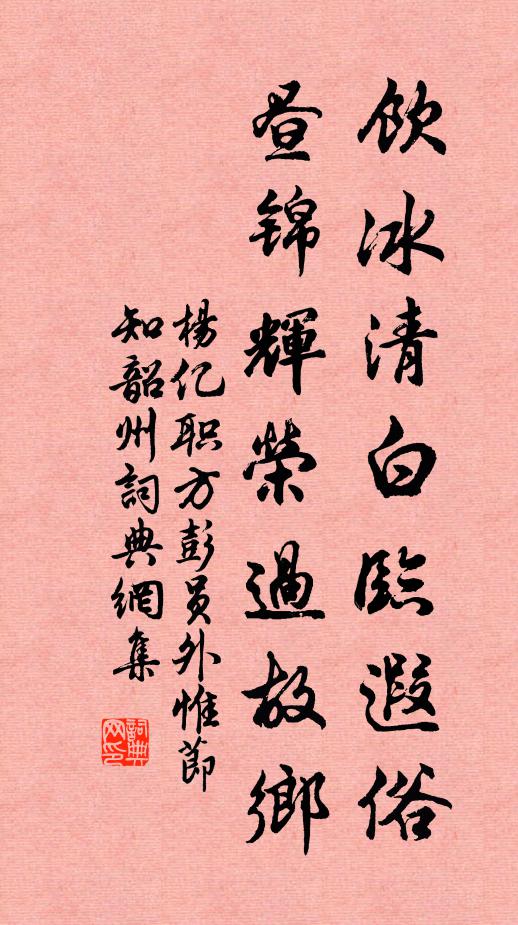 飲冰清白臨遐俗
昼锦輝榮過故鄉
楊亿职方彭員外惟節
知韶州詞典網集
詞典
网印